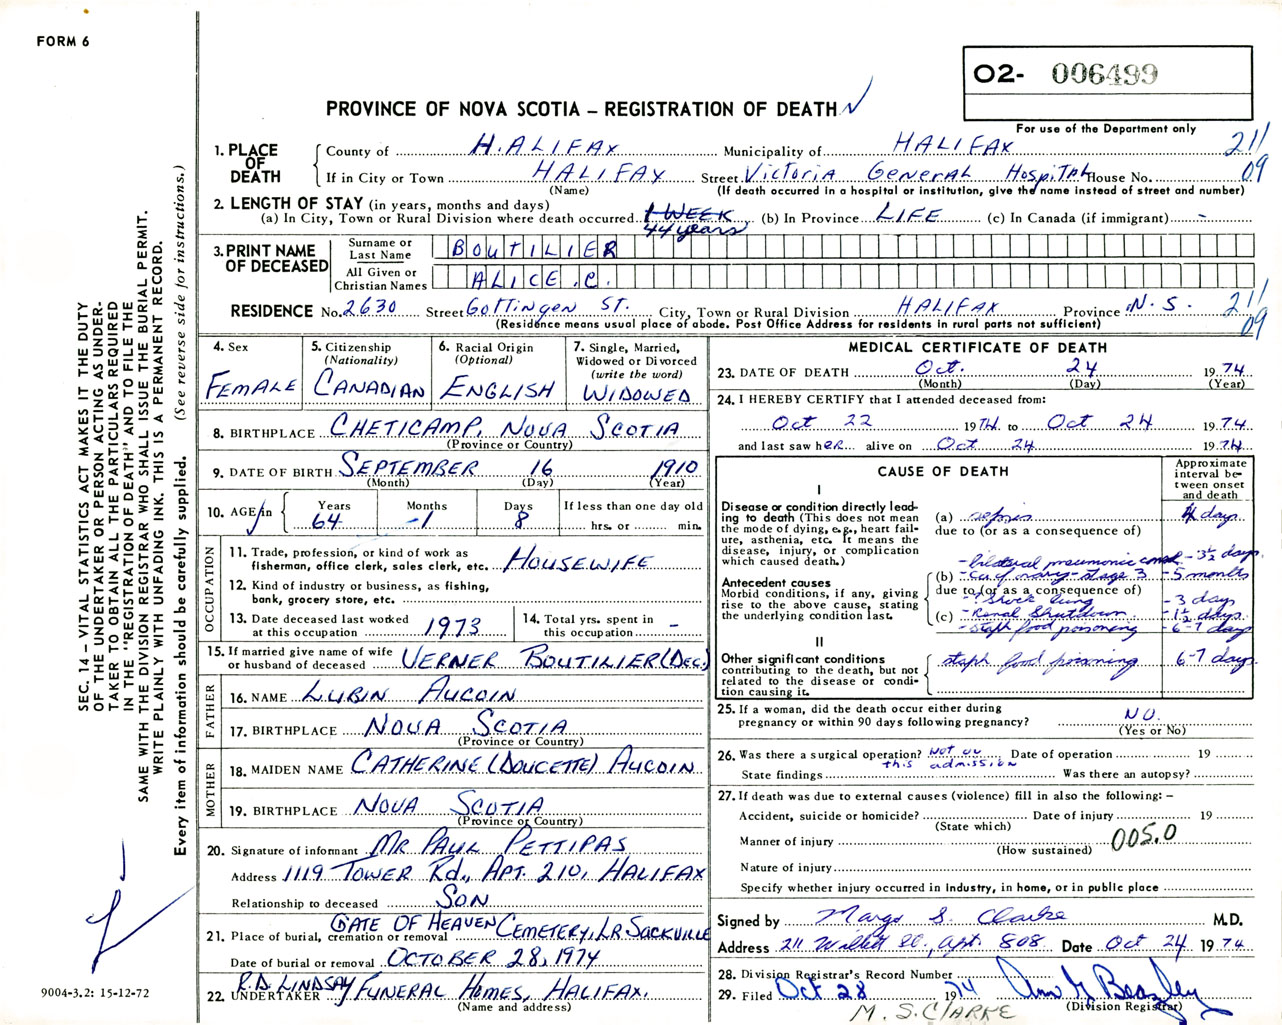 FORM 6
O2- 006499
PROVINCE OF NOVA SCOTIA – REGISTRATION OF DEATH
For use of the Department only
1. PLACE OF DEATH
County of HALIFAX Municipality of HALIFAX 211
If in City or Town HALIFAX Street Victoria General Hospital House No. 09
(Name) (If death occurred in a hospital or institution, give the name instead of street and number)
2. LENGTH OF STAY (in years, months and days)
(a) In City, Town or Rural Division where death occurred 1 WEEK (b) In Province LIFE (c) In Canada (if immigrant) -
44 years
3. PRINT NAME OF DECEASED
Surname or Last Name BOUTILIER
All Given or Christian Names ALICE .C.
RESIDENCE No. 2630 Street Gottingen ST. City, Town or Rural Division HALIFAX Province N.S. 211
(Residence means usual place of abode. Post Office Address for residents in rural parts not sufficient) 09
4. Sex
FEMALE
5. Citizenship
(Nationality)
CANADIAN
6. Racial Origin
(Optional)
ENGLISH
7. Single, Married,
Widowed or Divorced
(write the word)
WIDOWED
8. BIRTHPLACE CHETICAMP, NOVA SCOTIA
(Province or Country)
9. DATE OF BIRTH SEPTEMBER 16 1910
(Month) (Day) (Year)
10. AGE in
Years Months Days If less than one day old
64 -1 8 hrs. or min.
OCCUPATION
11. Trade, profession, or kind of work as
fisherman, office clerk, sales clerk, etc. HOUSEWIFE
12. Kind of industry or business, as fishing,
bank, grocery store, etc.
13. Date deceased last worked
at this occupation 1973
14. Total yrs. spent in
this occupation -
15. If married give name of wife
or husband of deceased VERNER BOUTILIER (DEC.)
FATHER
16. NAME LUBIN AUCOIN
17. BIRTHPLACE NOVA SCOTIA
(Province or Country)
MOTHER
18. MAIDEN NAME CATHERINE (DOUCETTE) AUCOIN
19. BIRTHPLACE NOVA SCOTIA
(Province or Country)
20. Signature of informant MR PAUL PETTIPAS
Address 1119 TOWER Rd., APT. 210, HALIFAX
Relationship to deceased SON
GATE OF HEAVEN
21. Place of burial, cremation or removal CEMETERY, LR SACKVILLE
Date of burial or removal OCTOBER 28, 1974
R.D. LINDSAY
22. UNDERTAKER FUNERAL HOMES, HALIFAX.
(Name and address)
MEDICAL CERTIFICATE OF DEATH
23. DATE OF DEATH Oct. 24 1974
(Month) (Day) (Year)
24. I HEREBY CERTIFY that I attended deceased from:
Oct 22 1974 to Oct 24 1974
and last saw her alive on Oct 24 1974
CAUSE OF DEATH
Approximate
interval be-
tween onset
and death
I
Disease or condition directly lead-
ing to death (This does not mean
the mode of dying, e.g., heart fail-
ure, asthenia, etc. It means the
disease, injury, or complication
which caused death.)
(a) sepsis 4 days
due to (or as a consequence of)
- bilateral pneumonia - 3½ days
Antecedent causes
Morbid conditions, if any, giving
rise to the above cause, stating
the underlying condition last.
(b) - ca of ovary - stage 3 - 5 months
due to (or as a consequence of)
- Shock lung - 3 days
(c) - Renal Shutdown - 1½ days
- Staph food poisoning - 6-7 days
II
Other significant conditions
contributing to the death, but not
related to the disease or condi-
tion causing it.
staph food poisoning 6-7 days
25. If a woman, did the death occur either during
pregnancy or within 90 days following pregnancy? NO.
(Yes or No)
26. Was there a surgical operation? Not on Date of operation 19
this admission
State findings Was there an autopsy?
27. If death was due to external causes (violence) fill in also the following: –
Accident, suicide or homicide? Date of injury 19
(State which)
Manner of injury 005.0
(How sustained)
Nature of injury
Specify whether injury occurred in Industry, in home, or in public place
Signed by Margo S. Clarke M.D.
Address 211 Willett St., Apt. 808 Date Oct 24 1974
28. Division Registrar's Record Number
29. Filed Oct 28 1974 Ann G Beazley
(Division Registrar)
M. S. CLARKE
SEC. 14 – VITAL STATISTICS ACT MAKES IT THE DUTY
OF THE UNDERTAKER OR PERSON ACTING AS UNDER-
TAKER TO OBTAIN ALL THE PARTICULARS REQUIRED
IN THE "REGISTRATION OF DEATH" AND TO FILE THE
SAME WITH THE DIVISION REGISTRAR WHO SHALL ISSUE THE BURIAL PERMIT.
WRITE PLAINLY WITH UNFADING INK. THIS IS A PERMANENT RECORD.
Every item of information should be carefully supplied. (See reverse side for instructions.)
9004-3.2: 15-12-72